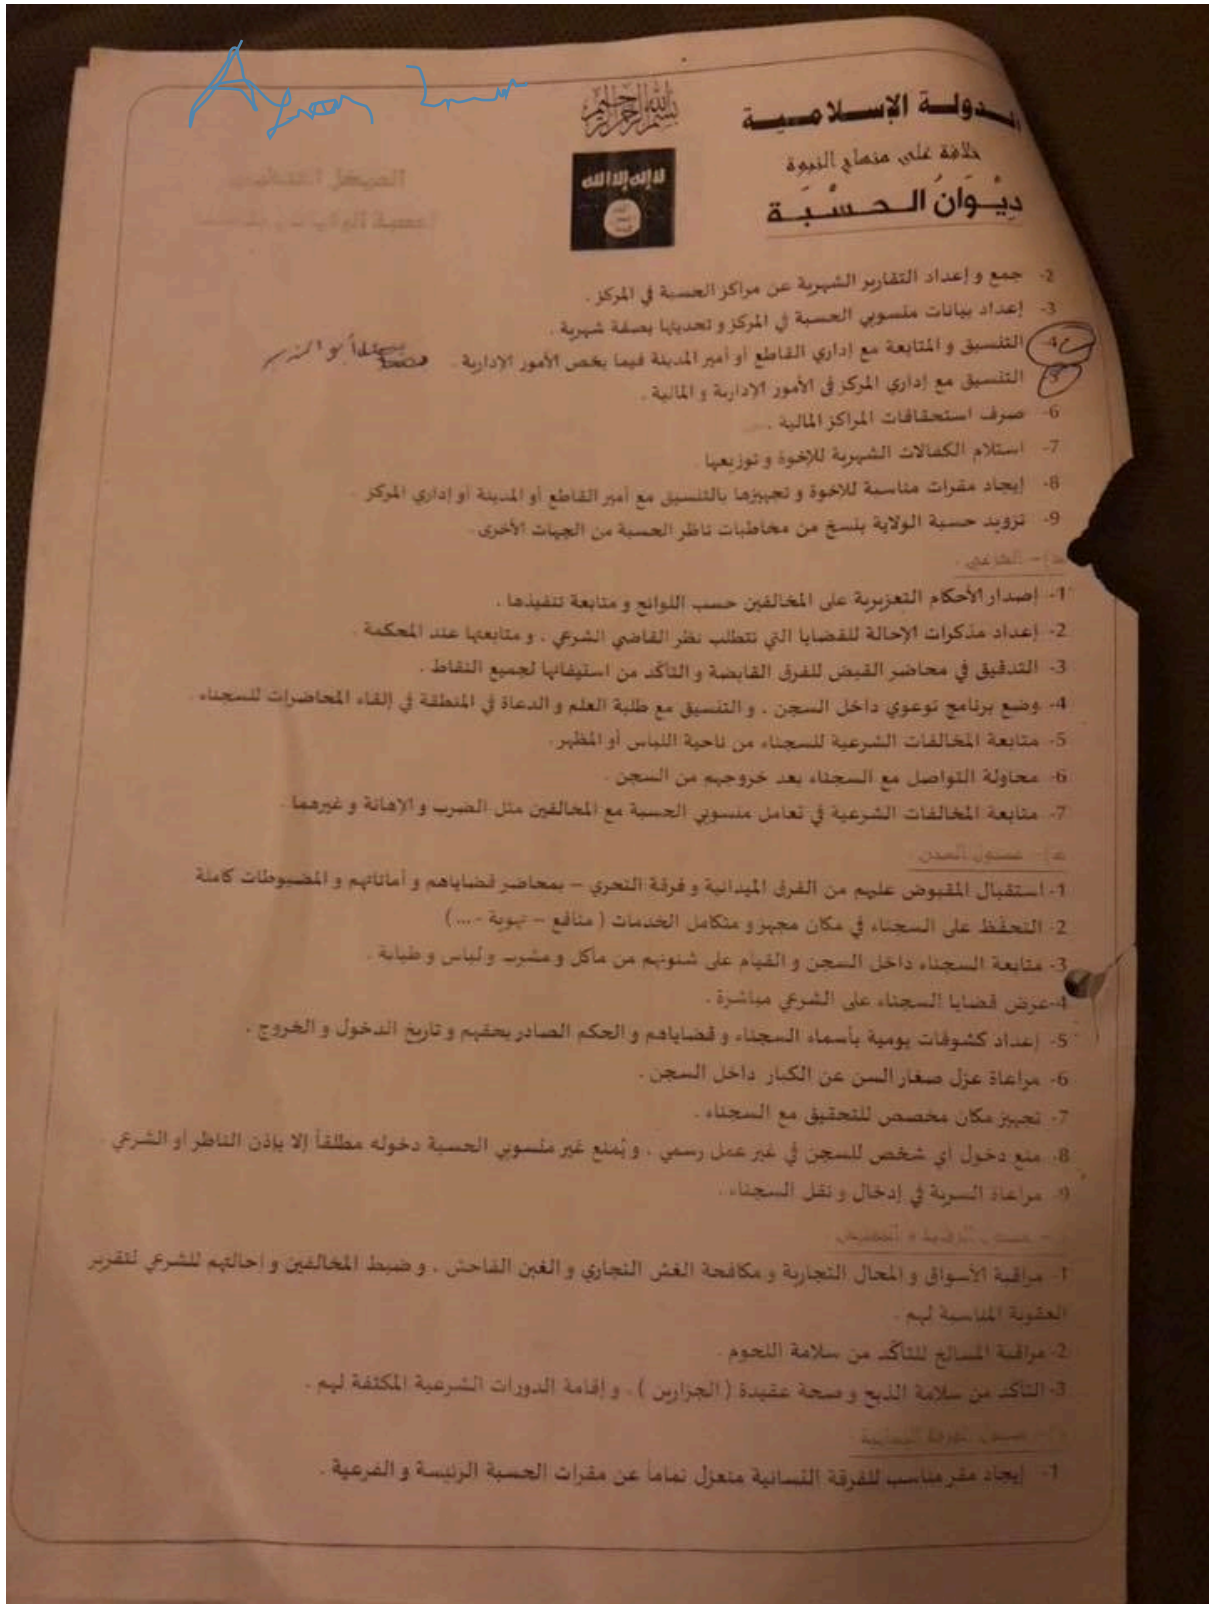 الدولة الإسلامية
خلافة على منهاج النبوة
ديْوَانُ الحسْبَة
بسم الله الرحمن الرحيم
لا إله إلا الله
الله
رسول
محمد
الهيكل التنظيمي
2- جمع و إعداد التقارير الشهرية عن مراكز الحسبة في المركز .
3- إعداد بيانات منسوبي الحسبة في المركز و تحديثها بصفة شهرية .
4- التنسيق و المتابعة مع إداري القاطع أو أمير المدينة فيما يخص الأمور الإدارية .
5- التنسيق مع إداري المركز في الأمور الإدارية و المالية .
6- صرف استحقاقات المراكز المالية .
7- استلام الكفالات الشهرية للإخوة و توزيعها
8- إيجاد مقرات مناسبة للإخوة و تجهيزها بالتنسيق مع أمير القاطع أو المدينة أو إداري المركز
9- تزويد حسبة الولاية بنسخ من مخاطبات ناظر الحسبة من الجهات الأخرى.
الشرعي .
1- إصدار الأحكام التعزيرية على المخالفين حسب اللوائح و متابعة تنفيذها .
2- إعداد مذكرات الإحالة للقضايا التي تتطلب نظر القاضي الشرعي ، و متابعتها عند المحكمة .
3- التدقيق في محاضر القبض للفرق القابضة و التأكّد من استيفائها لجميع النقاط .
4- وضع برنامج توعوي داخل السجن ، و التنسيق مع طلبة العلم و الدعاة في المنطقة في إلقاء المحاضرات للسجناء .
5- متابعة المخالفات الشرعية للسجناء من ناحية اللباس أو المظهر.
6- محاولة التواصل مع السجناء بعد خروجهم من السجن .
7- متابعة المخالفات الشرعية في تعامل منسوبي الحسبة مع المخالفين مثل الضرب و الإهانة و غيرهما .
مسئول السجن
1- استقبال المقبوض عليهم من الفرق الميدانية و فرقة التحري – بمحاضر قضاياهم و أماناتهم و المضبوطات كاملة
2- التحفّظ على السجناء في مكان مجهز و متكامل الخدمات ( منافع – تهوية - ... )
3- متابعة السجناء داخل السجن و القيام على شئونهم من مأكل و مشرب و لباس و طبابة .
4-عرض قضايا السجناء على الشرعي مباشرة .
5- إعداد كشوفات يومية بأسماء السجناء و قضاياهم و الحكم الصادر بحقهم و تاريخ الدخول و الخروج .
6- مراعاة عزل صغار السن عن الكبار داخل السجن .
7- تجهيز مكان مخصص للتحقيق مع السجناء .
8- منع دخول أي شخص للسجن في غير عمل رسمي ، و يُمنع غير منسوبي الحسبة دخوله مطلقاً إلا بإذن الناظر أو الشرعي
9- مراعاة السرية في إدخال و نقل السجناء .
1- مراقبة الأسواق و المحال التجارية و مكافحة الغش التجاري و الغبن الفاحش ، و ضبط المخالفين و إحالتهم للشرعي لتقرير
العقوبة المناسبة لهم .
2- مراقبة المسالخ للتأكّد من سلامة اللحوم .
3- التأكد من سلامة الذبح و صحة عقيدة ( الجزارين ) ، و إقامة الدورات الشرعية المكثفة لهم .
1- إيجاد مقر مناسب للفرقة النسائية منعزل تماماً عن مقرات الحسبة الرئيسة و الفرعية .